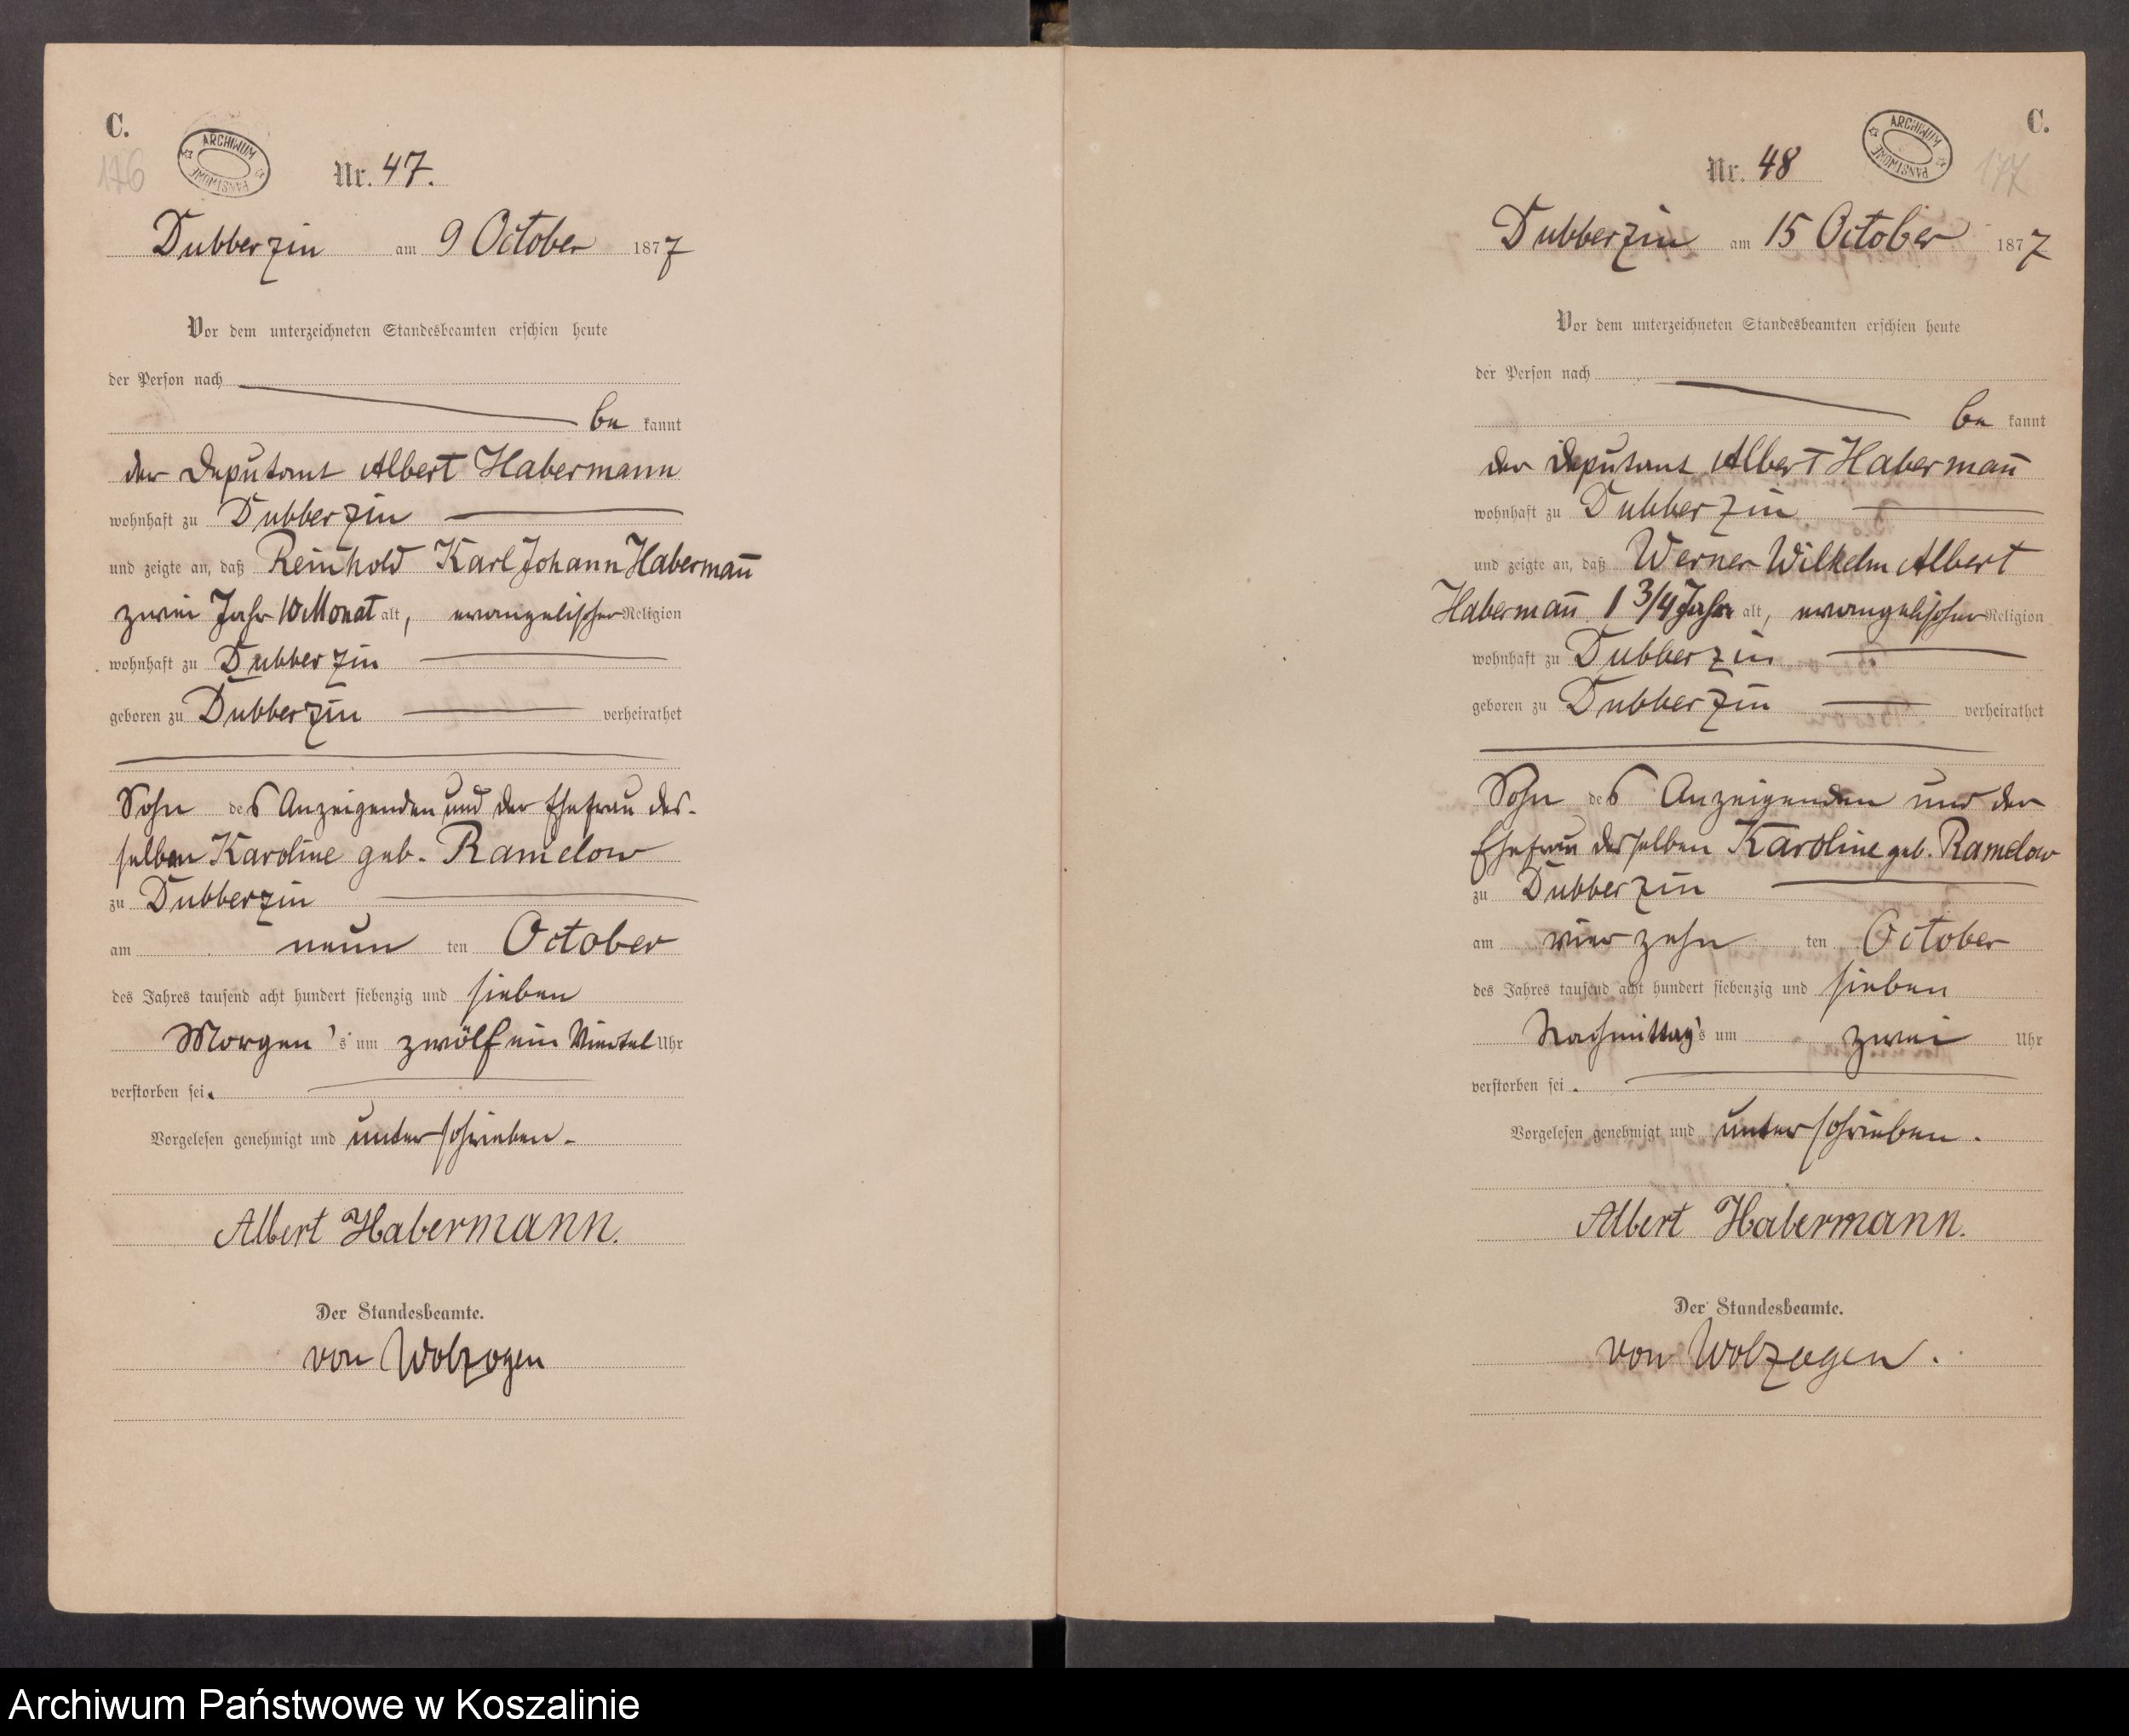 C.
176
ARCHIWUM PAŃSTWOWE
Nr. 47.
Dubberzin am 9 October 1877
Vor dem unterzeichneten Standesbeamten erschien heute
der Person nach
be kannt
der Deputant Albert Habermann
wohnhaft zu Dubberzin
und zeigte an, daß Reinhold Karl Johann Haberman̄
zwei Jahr 10 Monat alt, evangelischer Religion
wohnhaft zu Dubberzin
geboren zu Dubberzin verheirathet
Sohn des Anzeigenden und der Ehefrau des-
selben Karoline geb. Ramelow
zu Dubberzin
am neun ten October
des Jahres tausend acht hundert siebenzig und sieben
Morgen's um zwölf ein Viertel Uhr
verstorben sei.
Vorgelesen genehmigt und unterschrieben.
Albert Habermann.
Der Standesbeamte.
von Wolzogen
C.
177
ARCHIWUM PAŃSTWOWE
Nr. 48
Dubberzin am 15 October 1877
Vor dem unterzeichneten Standesbeamten erschien heute
der Person nach
be kannt
der Deputant Albert Haberman̄
wohnhaft zu Dubberzin
und zeigte an, daß Werner Wilhelm Albert
Haberman̄ 1 3/4 Jahr alt, evangelischer Religion
wohnhaft zu Dubberzin
geboren zu Dubberzin verheirathet
Sohn des Anzeigenden und der
Ehefrau desselben Karoline geb. Ramelow
zu Dubberzin
am vierzehn ten October
des Jahres tausend acht hundert siebenzig und sieben
Nachmittag's um zwei Uhr
verstorben sei.
Vorgelesen genehmigt und unterschrieben.
Albert Habermann.
Der Standesbeamte.
von Wolzogen.
Archiwum Państwowe w Koszalinie